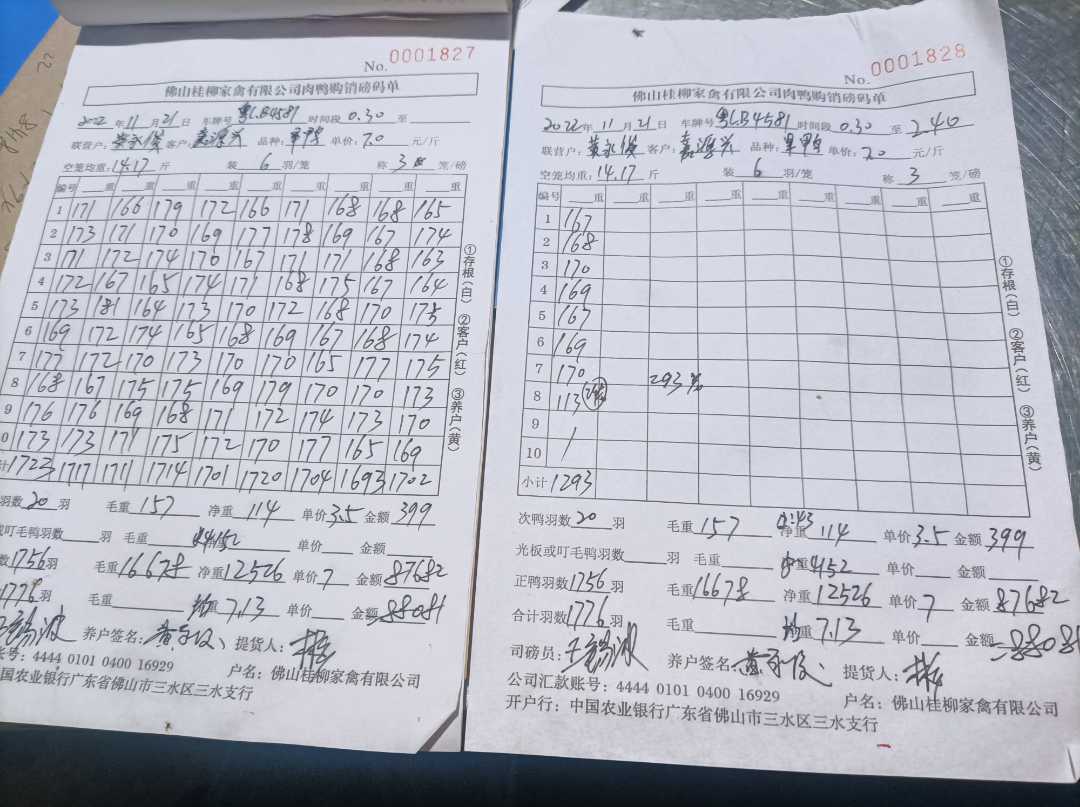 No. 0001827
佛山桂柳家禽有限公司肉鸭购销磅码单
2022年11月21日 车牌号粤LB4581时间段0.30至
联营户: 客户:嘉源兴 品种: 单价:7.0元/斤
空笼均重:14.17斤 装6羽/笼 称3笼/磅
编号 重 重 重 重 重 重 重 重 重
1 171 166 179 172 166 171 168 168 165
2 173 171 170 169 177 178 169 167 174
3 171 172 174 170 167 171 171 168 163
4 172 167 165 174 171 168 175 167 164
5 173 181 164 173 170 172 168 170 175
6 169 172 174 165 168 169 167 168 174
7 177 172 170 173 170 170 165 177 175
8 168 167 175 175 169 179 170 170 173
9 176 176 169 168 171 172 174 173 170
0 173 173 171 175 172 170 177 165 169
计 1723 1717 1711 1714 1701 1720 1704 1693 1702
羽数20羽 毛重157 净重114 单价3.5 金额399
或叮毛鸭羽数 羽 毛重 4152 单价 金额
数1756羽 毛重16678 净重12526 单价7 金额87682
1776羽 毛重 均重7.13 单价 金额88081
养户签名: 提货人:
账号:4444 0101 0400 16929 户名:佛山桂柳家禽有限公司
国农业银行广东省佛山市三水区三水支行
①存根(白) ②客户(红) ③养户(黄)
No. 0001828
佛山桂柳家禽有限公司肉鸭购销磅码单
2022年11月21日 车牌号粤LB4581时间段0.30至240
联营户: 客户:嘉源兴 品种: 单价:7.0元/斤
空笼均重:14.17斤 装6羽/笼 称3笼/磅
编号 重 重 重 重 重 重 重 重 重
1 167
2 168
3 170
4 169
5 167
6 169
7 170
8 113 293
9
10
小计 1293
次鸭羽数20羽 毛重157 :43 净重114 单价3.5 金额399
光板或叮毛鸭羽数 羽 毛重 4152 单价 金额
正鸭羽数1756羽 毛重16678 净重12526 单价7 金额87682
合计羽数1776羽 毛重 均重7.13 单价 金额88081
司磅员: 养户签名: 提货人:
公司汇款账号:4444 0101 0400 16929 户名:佛山桂柳家禽有限公司
开户行:中国农业银行广东省佛山市三水区三水支行
①存根(白) ②客户(红) ③养户(黄)